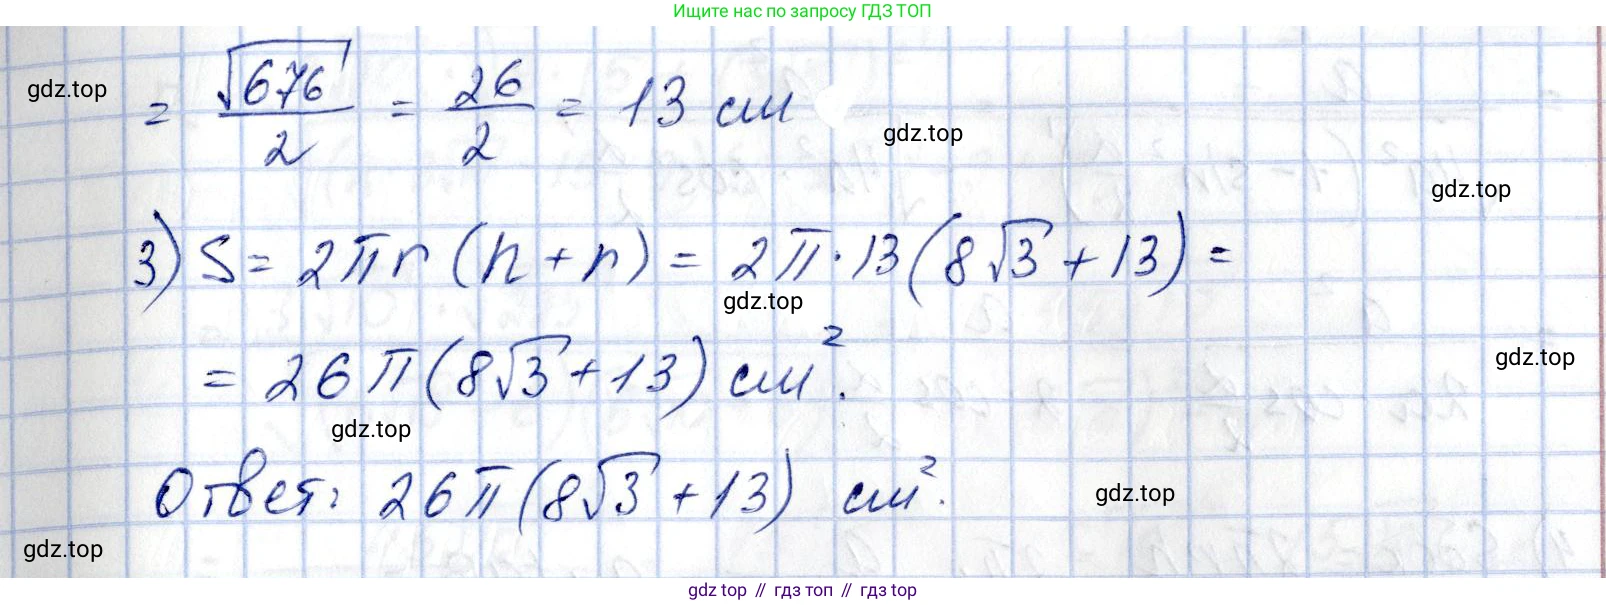 Ищите нас по запросу ГДЗ ТОП
= √676/2 = 26/2 = 13 см
gdz.top
gdz.top
gdz.top
3) S = 2πr (h + r) = 2π · 13 (8√3 + 13) =
gdz.top
= 26π (8√3 + 13) см².
gdz.top
gdz.top
Ответ: 26π (8√3 + 13) см².
gdz.top
gdz.top
gdz top // гдз топ // gdz top